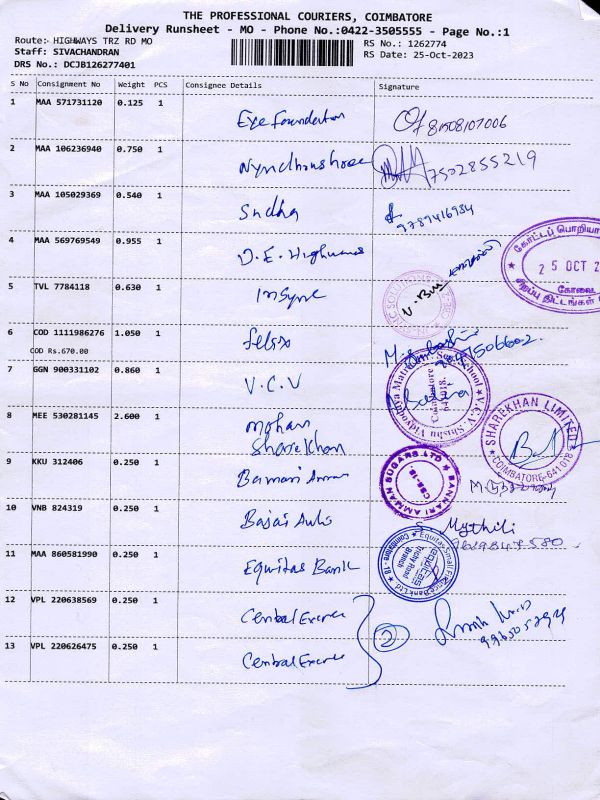 THE PROFESSIONAL COURIERS, COIMBATORE
Delivery Runsheet - MO - Phone No.:0422-3505555 - Page No.:1
Route: HIGHWAYS TRZ RD MO
RS No.: 1262774
Staff: SIVACHANDRAN
RS Date: 25-Oct-2023
DRS No.: DCJB126277401
S No Consignment No Weight PCS Consignee Details Signature
1 MAA 571731120 0.125 1 Eye Foundation 81508107006
2 MAA 106236940 0.750 1 7502855219
3 MAA 105029369 0.540 1 Sudha 9789416984
4 MAA 569769549 0.955 1 D.E. Highways
கோட்டப் பொறியா
25 OCT 2
கோவை
சிறப்பு திட்டங்கள்
5 TVL 7784118 0.630 1 Insync
6 COD 1111986276 1.050 1 Felix
COD Rs.670.00
7 GGN 900331102 0.860 1 V.C.V
V.C.V. Shishu Vidyodhaya Matric Hr. Sec. School
Coimbatore
641018.
8 MEE 530281145 2.600 1 Mohan
Sharekhan
SHAREKHAN LIMITED
COIMBATORE-641 018
9 KKU 312406 0.250 1 Bannari Amman
BANNARI AMMAN SUGARS LTD
CBE-18.
10 VNB 824319 0.250 1 Bajaj Auto S. Mythili
11 MAA 860581990 0.250 1 Equitas Bank
Equitas Small Finance Bank Ltd
equitas
Trichy Road
Branch
Coimbatore - 18
12 VPL 220638569 0.250 1 Central Excise
2
13 VPL 220626475 0.250 1 Central Excise